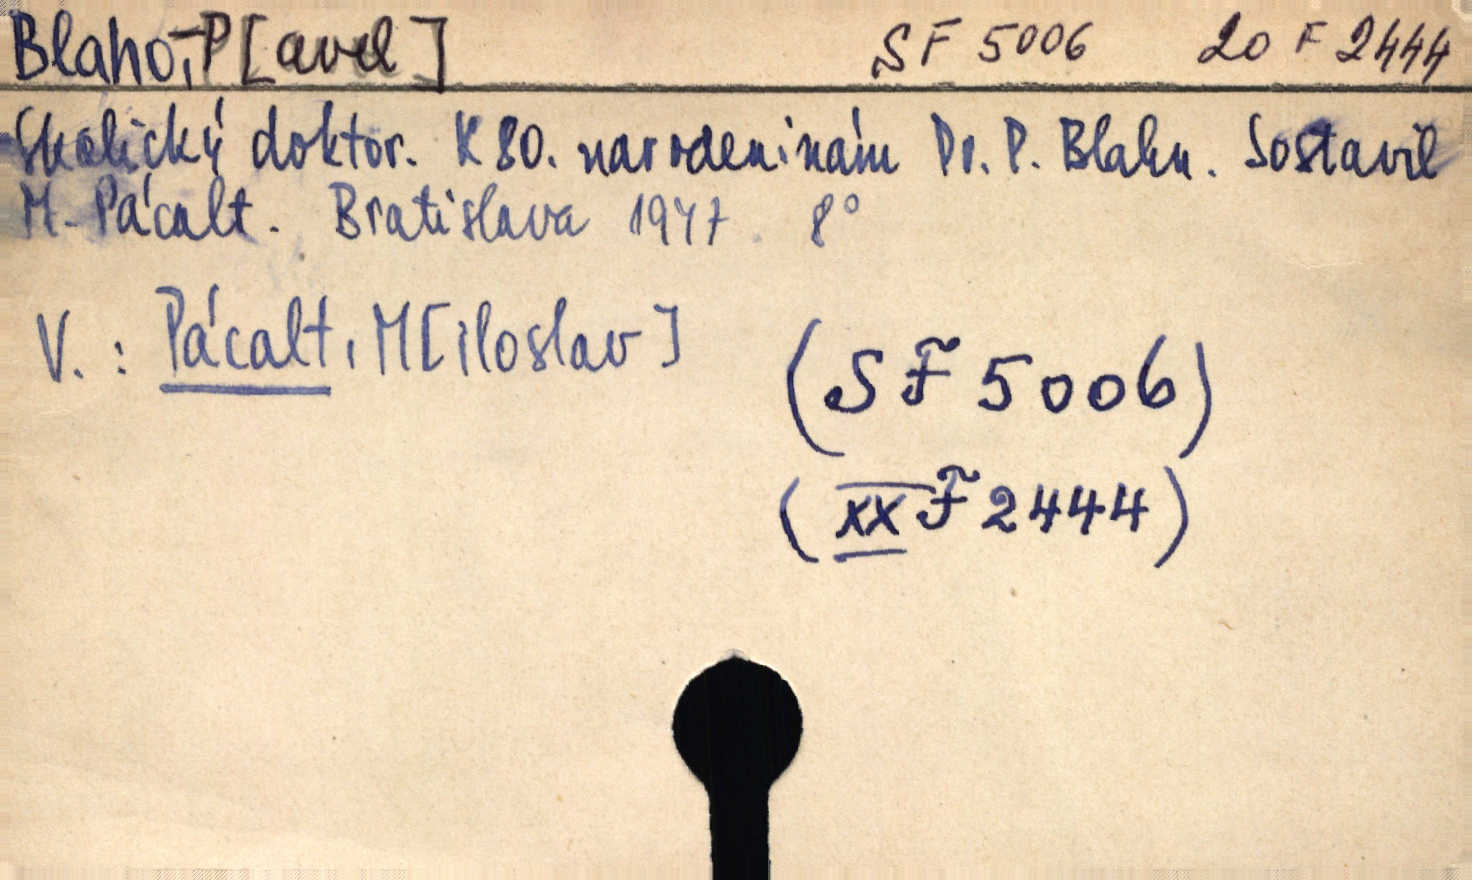 Blaho, P[avel] SF 5006 20 F 2444
Skalický doktor. K 80. narodeninám Dr. P. Blahu. Sostavil
M. Pácalt. Bratislava 1947. 8°
V.: Pácalt, M[iloslav]
(SF 5006)
(XX F 2444)